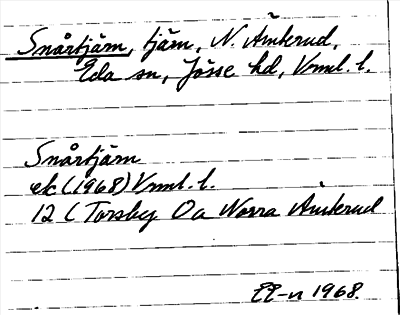 Snårtjärn, tjärn, N. Åmterud,
Eda sn, Jösse hd, Vrml. l.
Snårtjärn
ek (1968) Vrml. l.
12 C Torsby Oa Norra Åmterud
EE-n 1968.